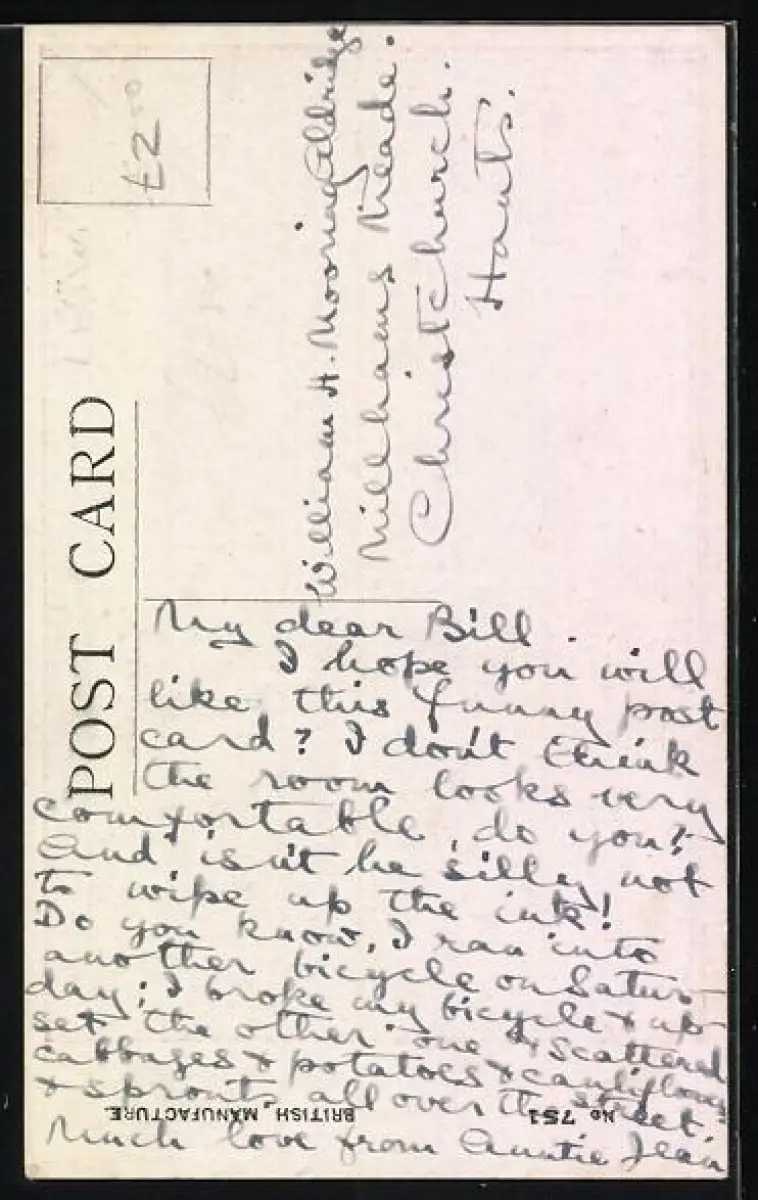 £2.00
POST CARD
William H. Mooring Aldridge
Millhams Meade.
Christchurch.
Hants.
My dear Bill.
I hope you will
like this funny post
card? I don't think
the room looks very
comfortable, do you?
And isn't he silly not
to wipe up the ink!
Do you know, I ran into
another bicycle on Satur-
day; I broke my bicycle & up-
set the other one & scattered
cabbages & potatoes & cauliflowers
& sprouts all over the street.
Much love from Auntie Jean
BRITISH MANUFACTURE.
No 751